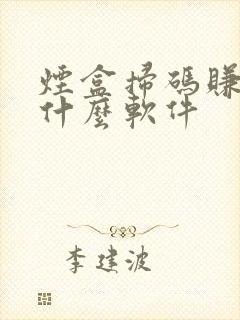 煙盒掃碼賺
什麼軟件
李建波